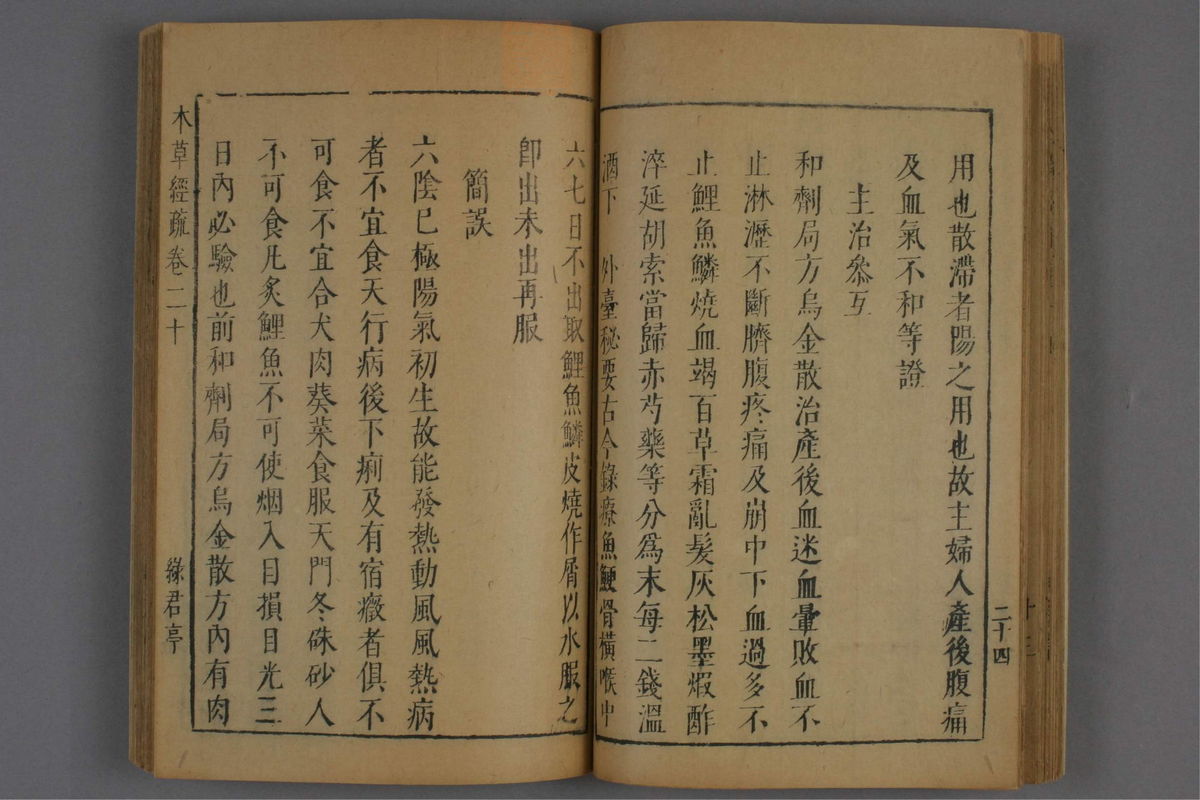 用也散滯者陽之用也故主婦人產後腹痛
及血氣不和等證
主治叅互
和劑局方烏金散治產後血迷血暈敗血不
止淋瀝不斷臍腹疼痛及崩中下血過多不
止鯉魚鱗燒血竭百草霜亂髮灰松墨煆酢
淬延胡索當歸赤芍藥等分爲末每二錢溫
酒下 外臺秘要古今錄療魚鯁骨橫喉中
二十四
六七日不出取鯉魚鱗皮燒作屑以水服之
卽出未出再服
簡誤
六陰已極陽氣初生故能發熱動風風熱病
者不宜食天行病後下痢及有宿癥者俱不
可食不宜合犬肉葵菜食服天門冬硃砂人
不可食凡炙鯉魚不可使烟入目損目光三
日內必驗也前和劑局方烏金散方內有肉
木草經疏卷二十
綠君亭